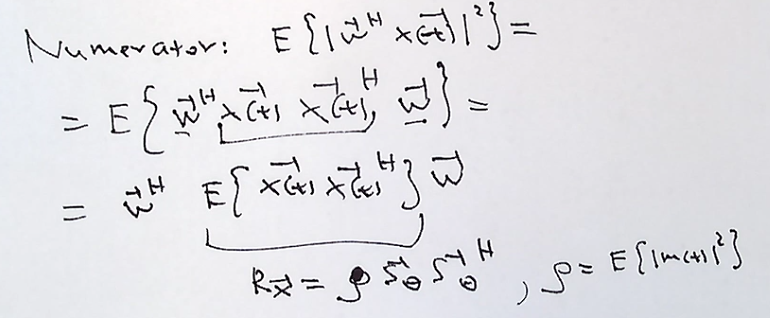 Numerator: E{|w⃗ᴴ x⃗(t)|²} =
= E{w⃗ᴴ x⃗(t) x⃗(t)ᴴ w⃗} =
= w⃗ᴴ E{x⃗(t) x⃗(t)ᴴ} w⃗
R_x⃗ = ρ S⃗_θ S⃗_θᴴ , ρ = E{|m(t)|²}